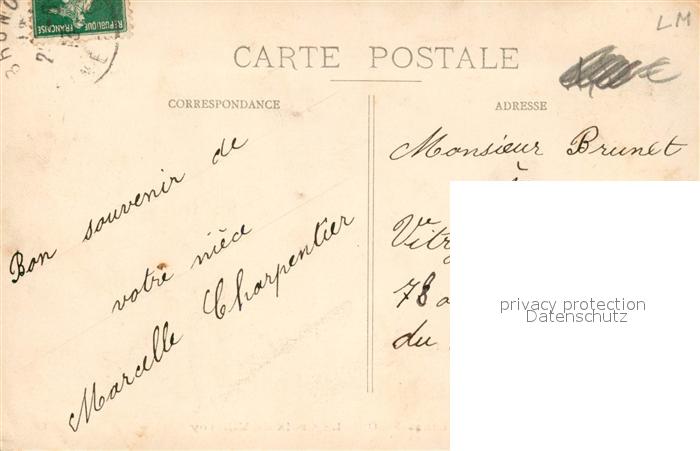 REPUBLIQUE FRANÇAISE
LM
CARTE POSTALE
CORRESPONDANCE
ADRESSE
Bon souvenir de
votre nièce
Marcelle Charpentier
Monsieur Brunet
à
Vitry
78
du
privacy protection
Datenschutz